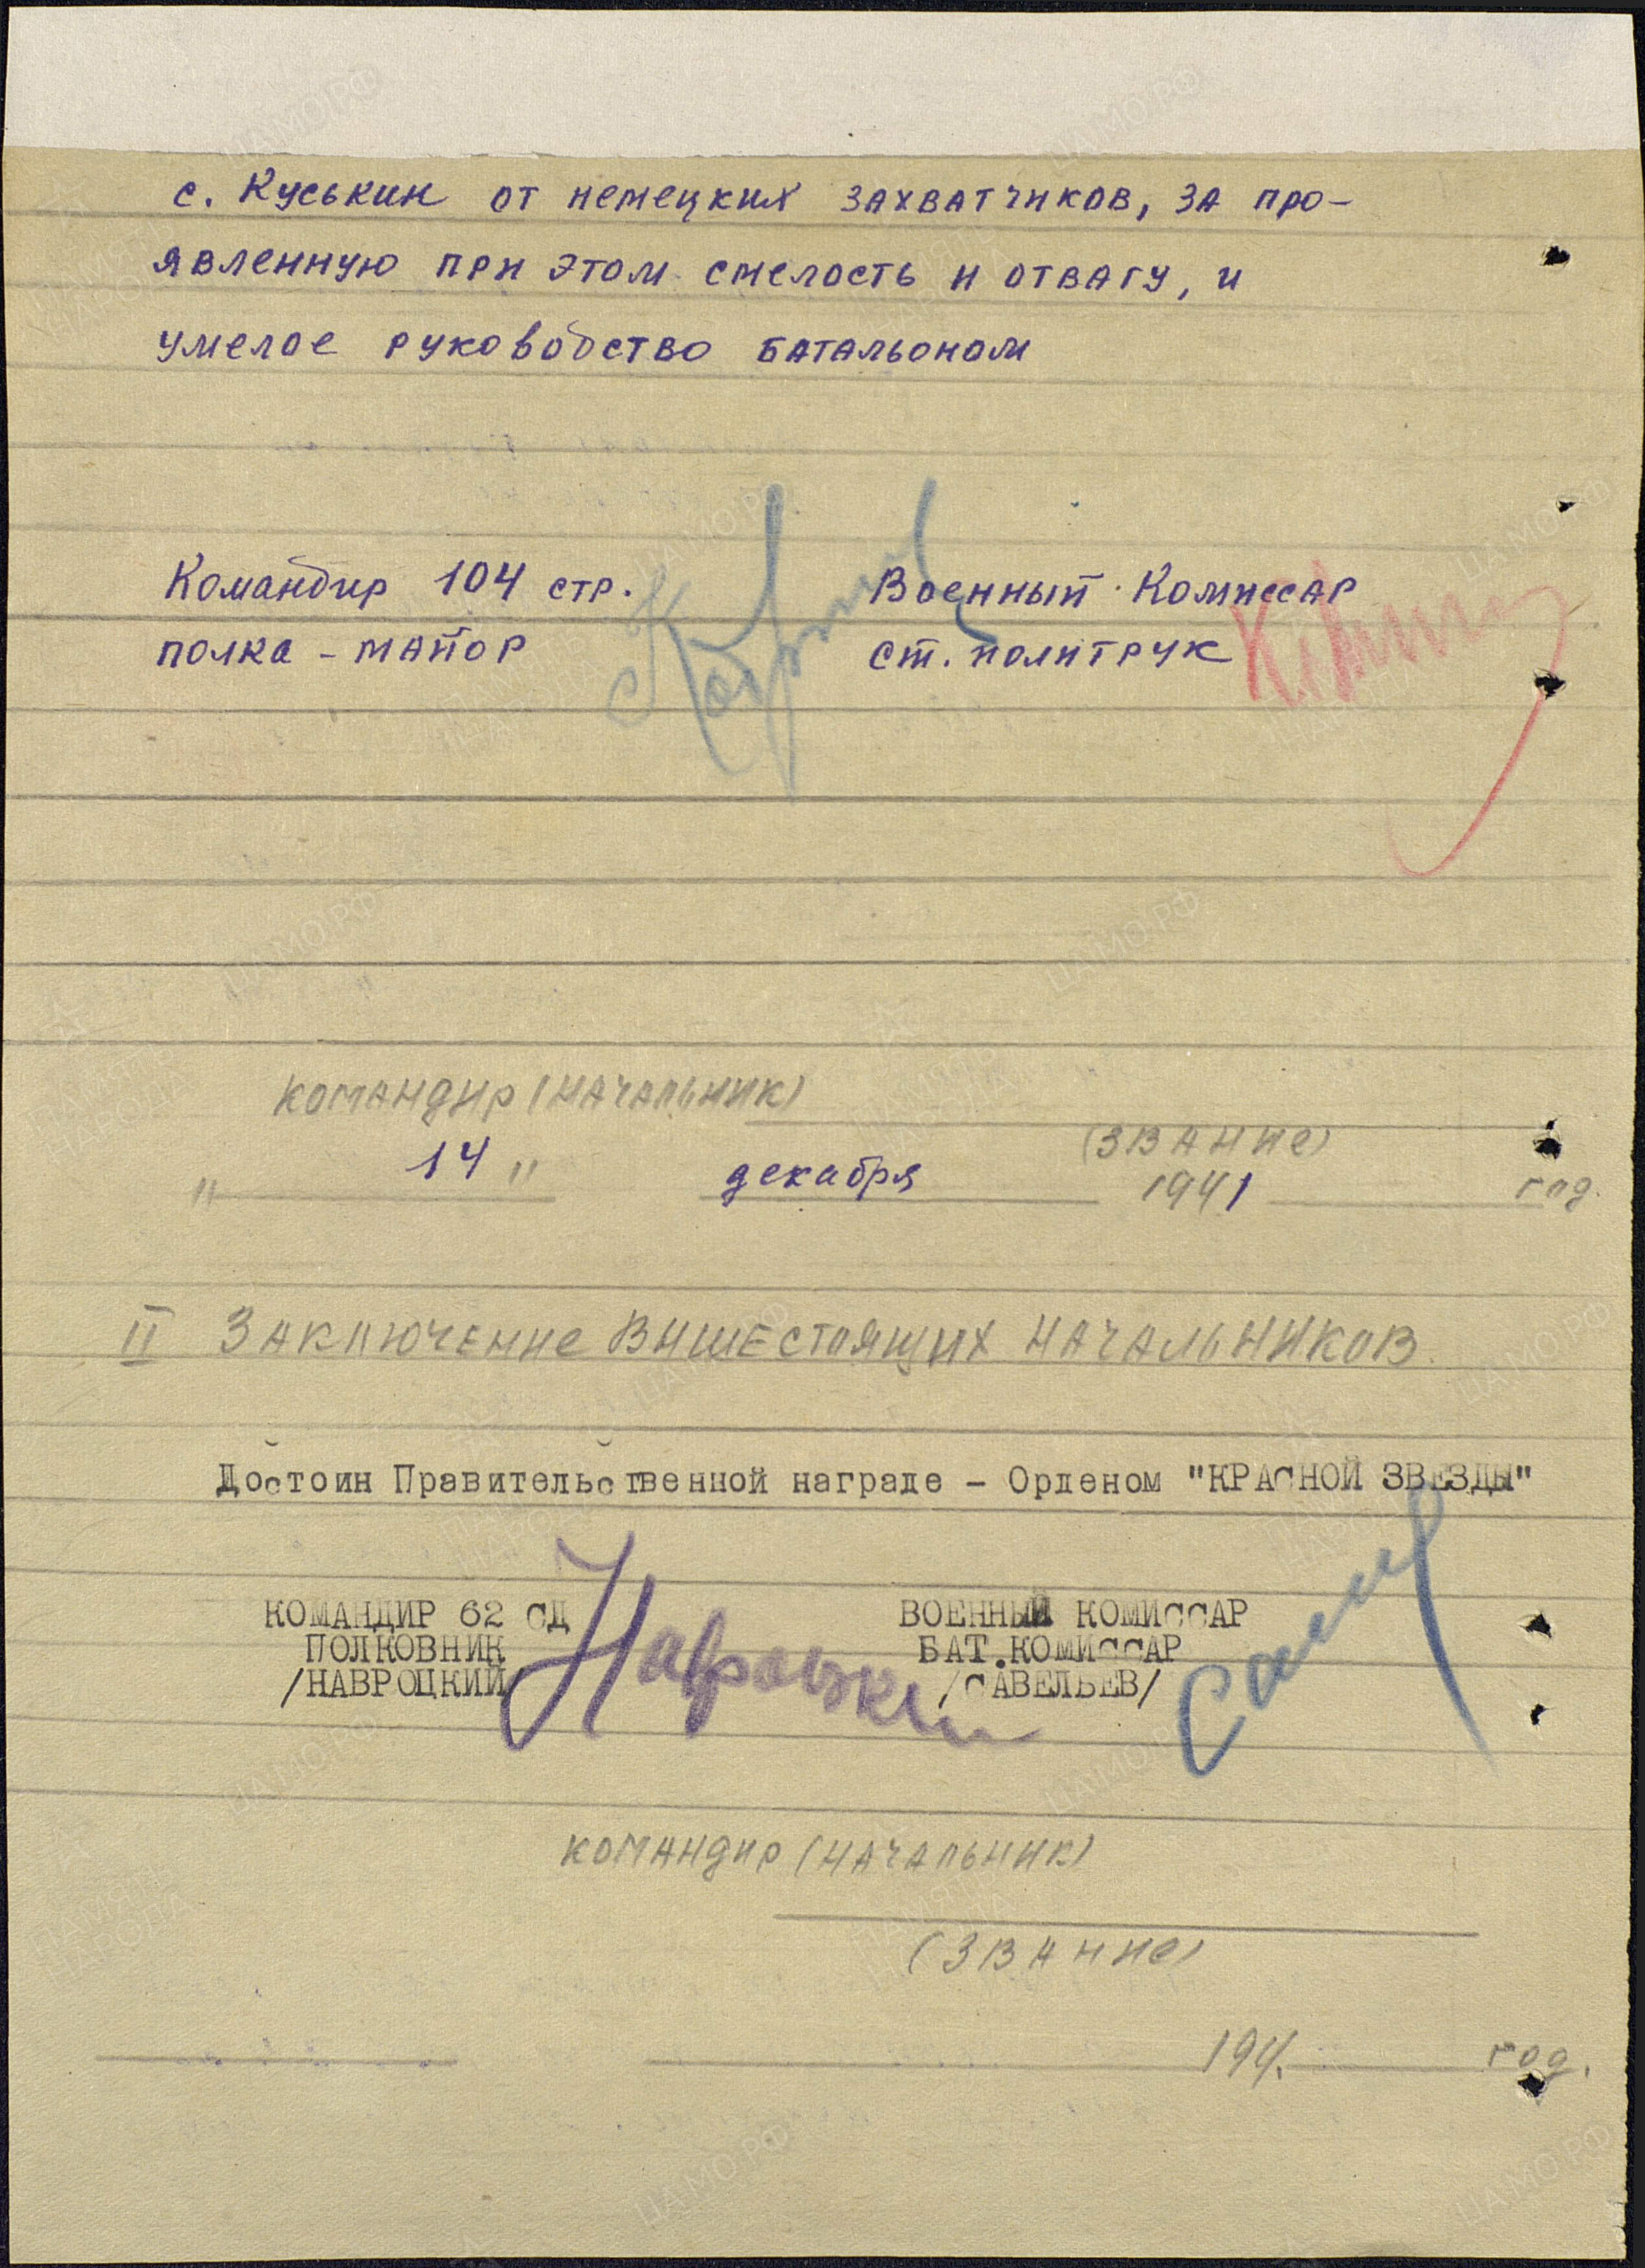 с. Куськин от немецких захватчиков, за про-
явленную при этом смелость и отвагу, и
умелое руководство батальоном
Командир 104 стр. Военный Комиссар
полка - майор ст. политрук
командир (начальник)
(звание)
" 14 " декабря 1941 год.
II Заключение вишестоящих начальников.
Достоин Правительственной награде - Орденом "КРАСНОЙ ЗВЕЗДЫ"
КОМАНДИР 62 СД ВОЕННЫЙ КОМИССАР
ПОЛКОВНИК БАТ.КОМИССАР
/НАВРОЦКИЙ/ /САВЕЛЬЕВ/
Навроцкий
командир (начальник)
(звание)
194. год.